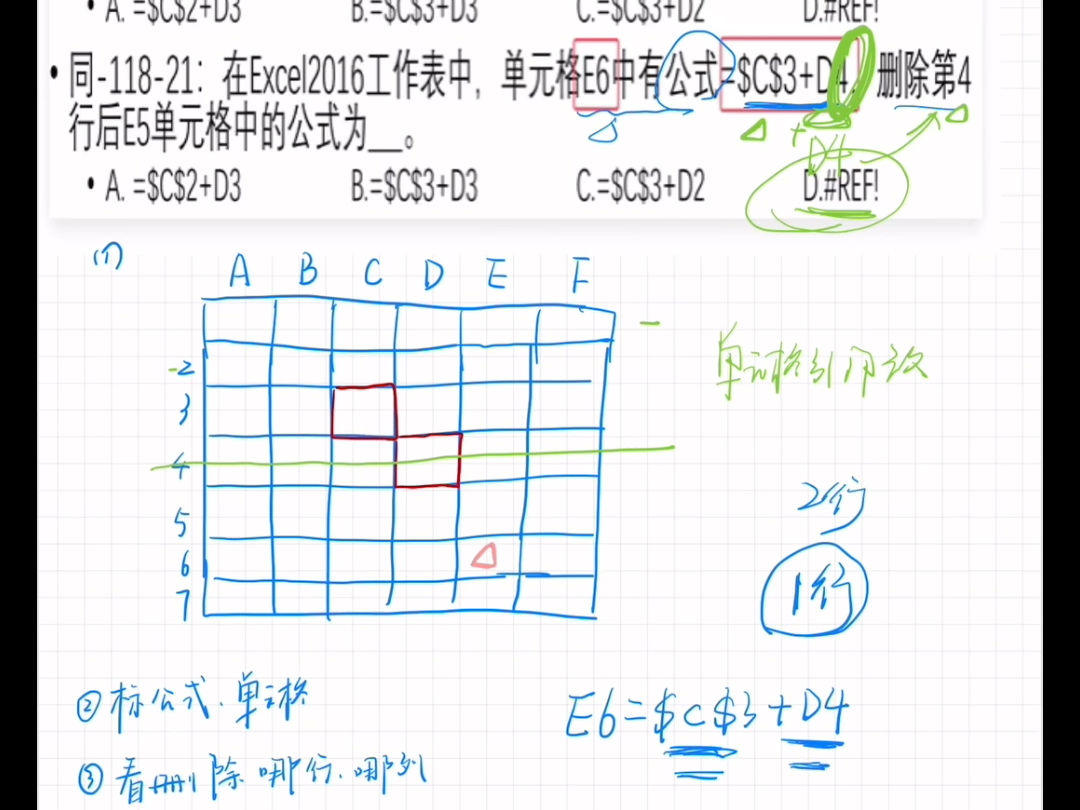 • A. =$C$2+D3 B.=$C$3+D3 C.=$C$3+D2 D.#REF!
• 同-118-21：在Excel2016工作表中，单元格E6中有公式=$C$3+D4，删除第4
行后E5单元格中的公式为___。
+
D4
• A. =$C$2+D3 B.=$C$3+D3 C.=$C$3+D2 D.#REF!
(1)
A B C D E F
2
3
4
5
6
7
单元格引用改
2行
1行
② 标公式.单元格
E6=$C$3+D4
③ 看删除哪行.哪列